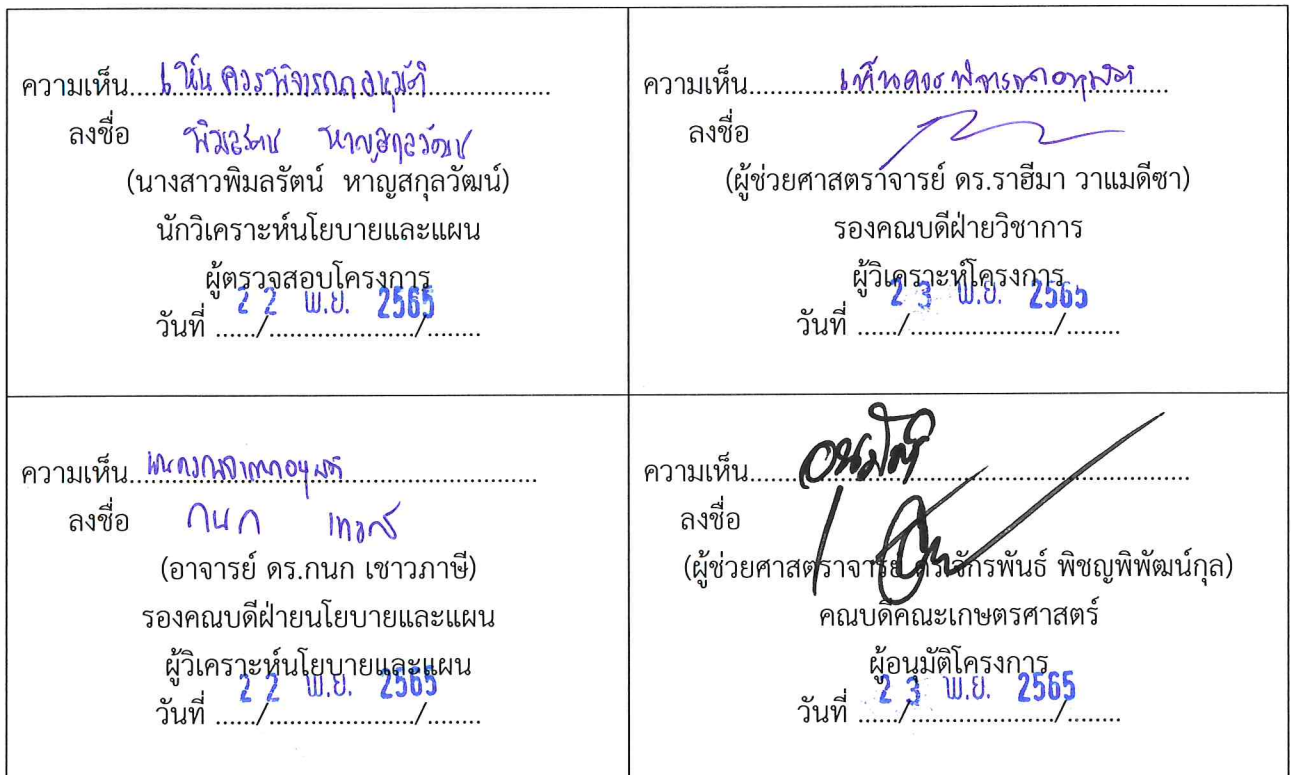 ความเห็น เห็นควรพิจารณาอนุมัติ
ลงชื่อ พิมลรัตน์ หาญสกุลวัฒน์
(นางสาวพิมลรัตน์ หาญสกุลวัฒน์)
นักวิเคราะห์นโยบายและแผน
ผู้ตรวจสอบโครงการ
วันที่ ...../......................./........ 22 พ.ย. 2565
ความเห็น เห็นควรพิจารณาอนุมัติ
ลงชื่อ
(ผู้ช่วยศาสตราจารย์ ดร.ราฮีมา วาแมดีซา)
รองคณบดีฝ่ายวิชาการ
ผู้วิเคราะห์โครงการ
วันที่ ...../......................./........ 23 พ.ย. 2565
ความเห็น เห็นควรพิจารณาอนุมัติ
ลงชื่อ กนก
(อาจารย์ ดร.กนก เชาวภาษี)
รองคณบดีฝ่ายนโยบายและแผน
ผู้วิเคราะห์นโยบายและแผน
วันที่ ...../......................./........ 22 พ.ย. 2565
ความเห็น อนุมัติ
ลงชื่อ
(ผู้ช่วยศาสตราจารย์ ดร.จักรพันธ์ พิชญพิพัฒน์กุล)
คณบดีคณะเกษตรศาสตร์
ผู้อนุมัติโครงการ
วันที่ ...../......................./........ 23 พ.ย. 2565